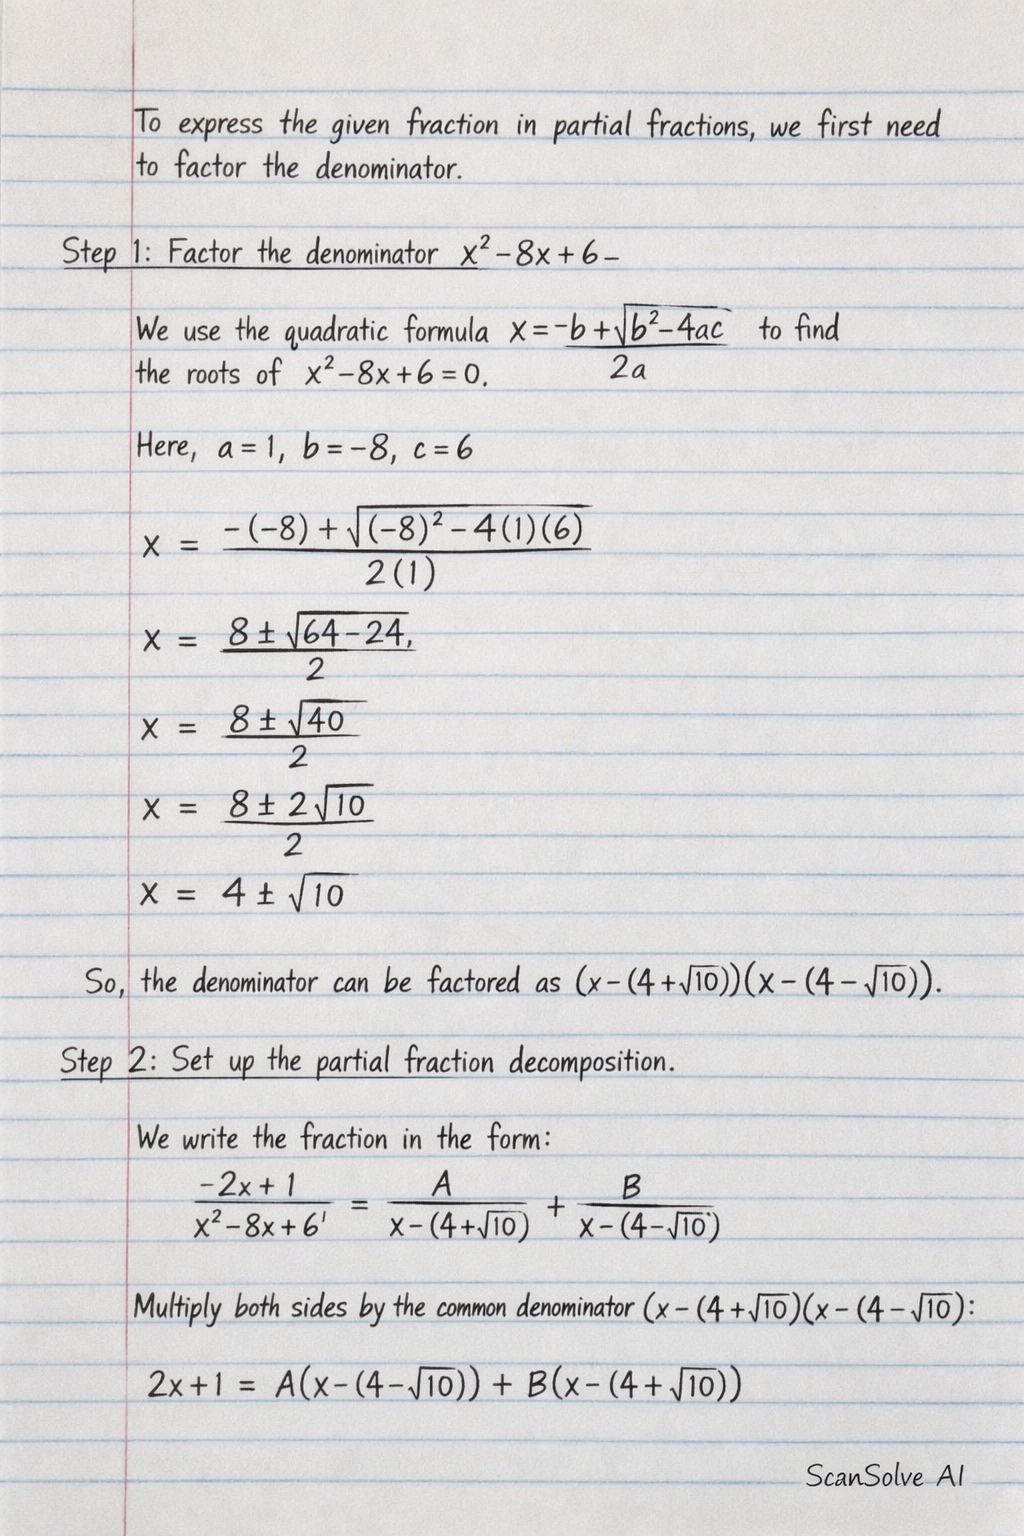 To express the given fraction in partial fractions, we first need
to factor the denominator.
Step 1: Factor the denominator x² – 8x + 6 –
We use the quadratic formula x = -b + √(b² – 4ac) / 2a to find
the roots of x² – 8x + 6 = 0.
Here, a = 1, b = –8, c = 6
x = (-(-8) + √((-8)² – 4(1)(6))) / 2(1)
x = (8 ± √(64 – 24,)) / 2
x = (8 ± √40) / 2
x = (8 ± 2√10) / 2
x = 4 ± √10
So, the denominator can be factored as (x – (4 + √10))(x – (4 – √10)).
Step 2: Set up the partial fraction decomposition.
We write the fraction in the form:
(-2x + 1) / (x² – 8x + 6') = A / (x – (4+√10)) + B / (x – (4–√10))
Multiply both sides by the common denominator (x – (4 + √10)(x – (4 – √10):
2x + 1 = A(x – (4 – √10)) + B(x – (4 + √10))
ScanSolve AI